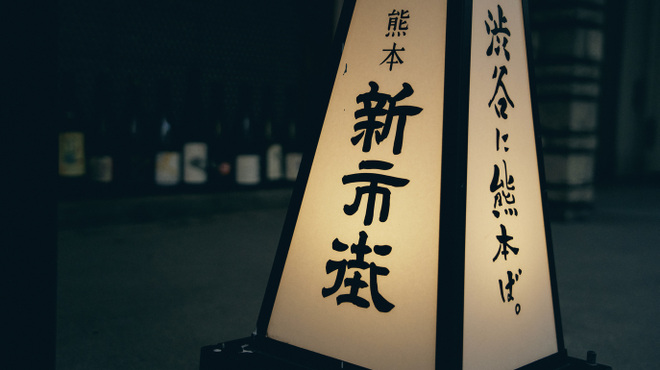 熊本
新市街
渋谷に熊本ば。